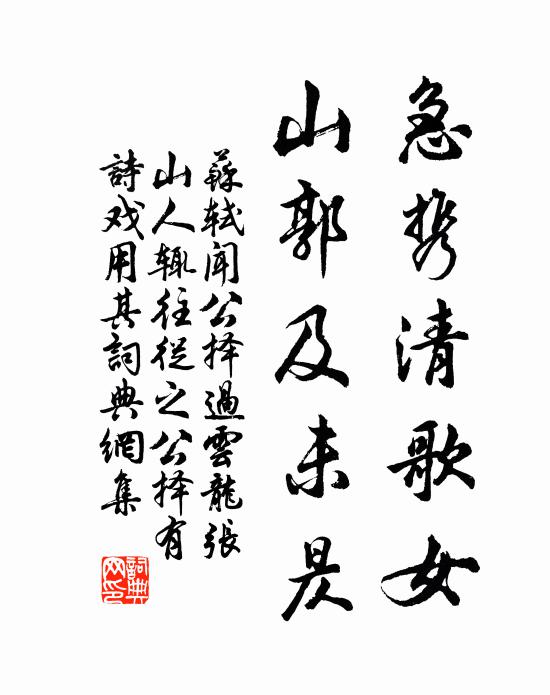 急携清歌女
山郭及未昃
蘇軾闻公择過雲龍張
山人輒往從之公择有
詩戏用其詞典網集
詞典网印